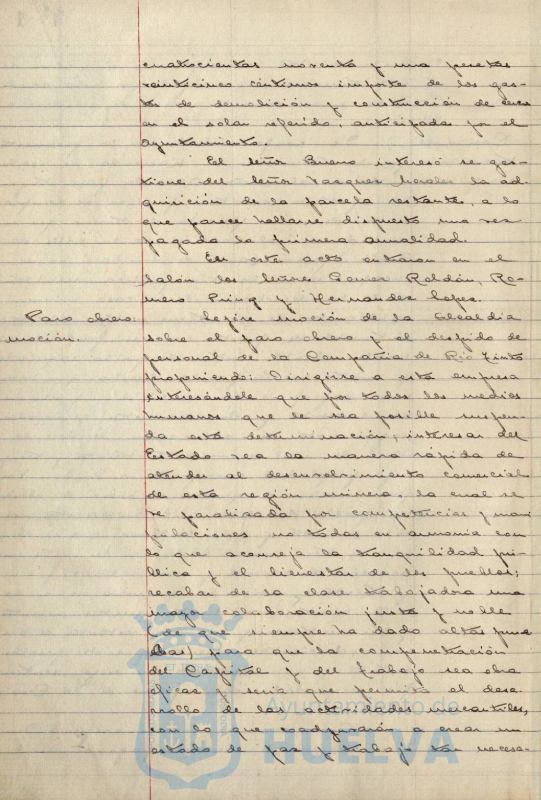 cuatrocientas noventa y una pesetas
veinticinco céntimos importe de los gas-
tos de demolición y construcción de
en el solar referido, anticipadas por el
Ayuntamiento.
El Señor Bueno interesó se ges-
tione del Señor Vazquez Morales la ad-
quisición de la parcela restante, a lo
que parece hallarse dispuesto una vez
pagada la primera anualidad.
En este acto entraron en el
Salón los Señores Gomez Roldán, Ro-
mero y Hernandez Lopez.
Paro obrero:
moción.
Leyose moción de la Alcaldia
sobre el paro obrero y el despido de
personal de la Compañia de Rio Tinto
proponiendo: Dirigirse a esta empresa
interesándole que por todos los medios
humanos que le sea posible suspen-
da esta determinación; interesar del
Estado vea la manera rápida de
atender al desenvolvimiento comercial
de esta región minera, la cual se
ve paralizada por competencias y mani
pulaciones no todas en armonia con
lo que aconseja la tranquilidad pú-
blica y el bienestar de los pueblos;
recabar de la clase trabajadora una
mayor colaboración justa y noble
(de que siempre ha dado altas prue
bas) para que la compenetración
del Capital y del trabajo sea obra
eficaz y seria que permita el desa-
rrollo de las actividades mercantiles,
con lo que coadyuvarán a crear un
estado de paz y trabajo tan necesa-
Ayuntamiento de
HUELVA